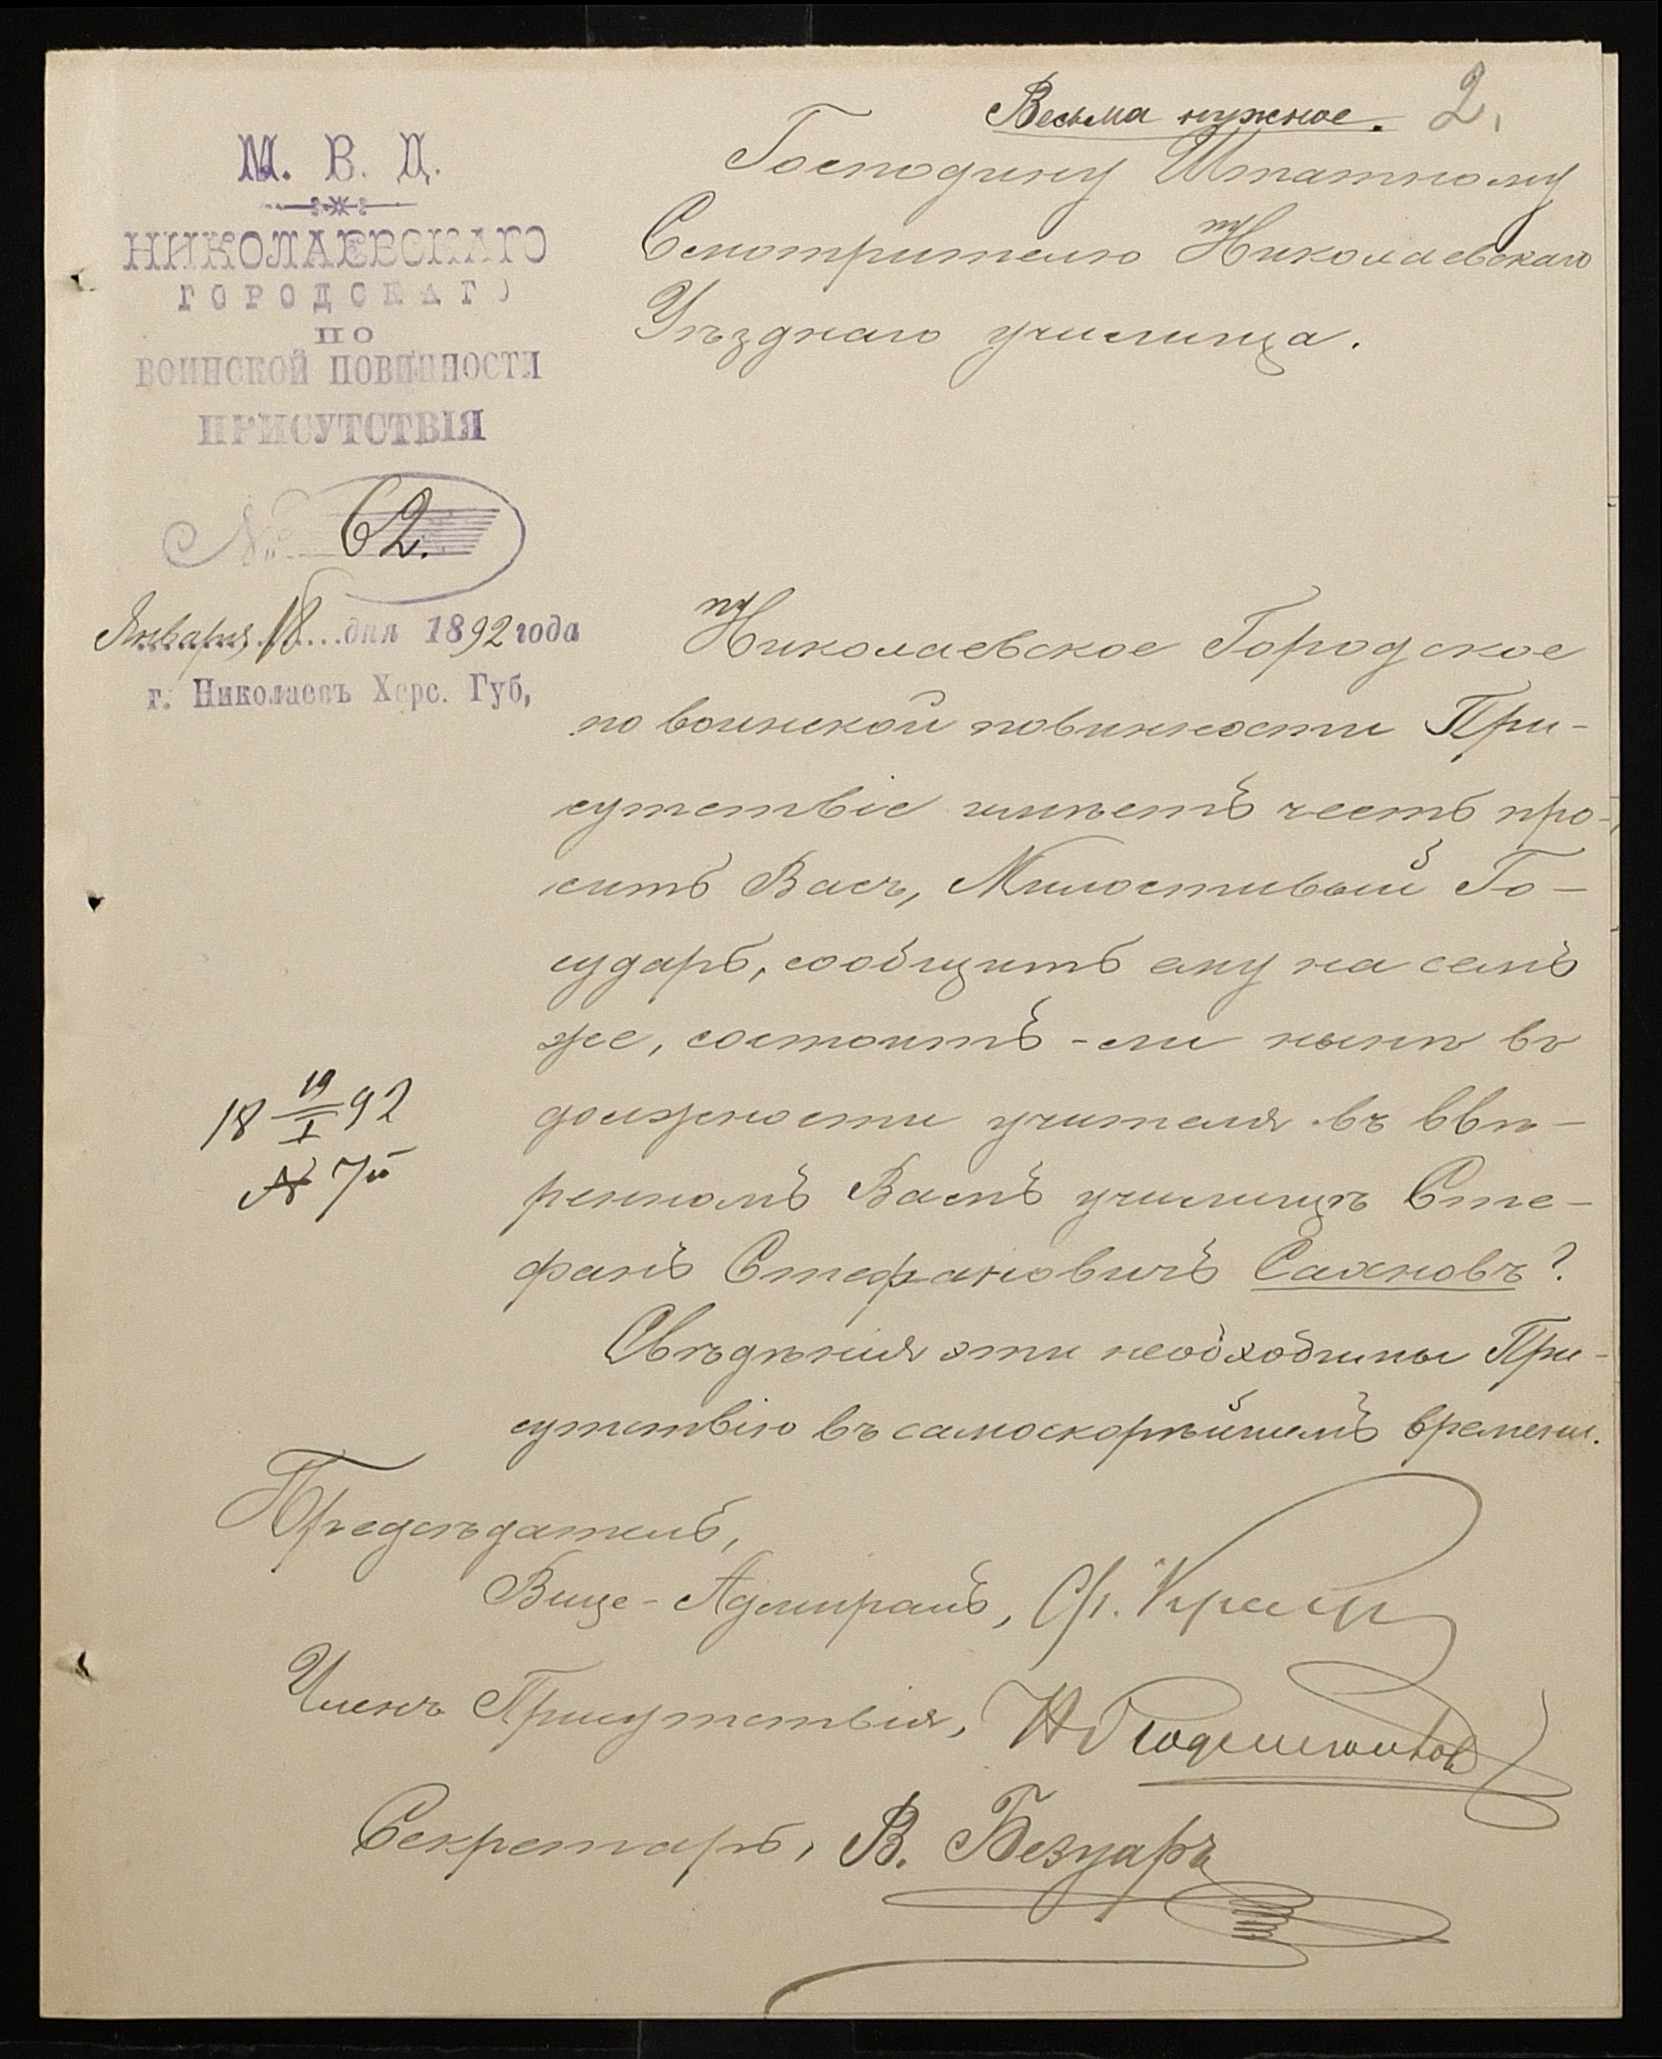 Весьма нужное. 2.
М. В. Д.
НИКОЛАЕВСКАГО
ГОРОДСКАГО
ПО
ВОИНСКОЙ ПОВИННОСТИ
ПРИСУТСТВІЯ
№ 62.
Января 18 дня 1892 года
г. Николаевъ Херс. Губ,
Господину Штатному
Смотрителю Николаевскаго
Уѣзднаго училища.
Николаевское Городское
по воинской повинности При-
сутствіе имѣетъ честь про-
сить Васъ, Милостивый Го-
сударь, сообщить ему на семъ
же, состоитъ-ли нынѣ въ
должности учителя въ ввѣ-
ренномъ Вамъ училищѣ Сте-
фанъ Стефановичъ Сахновъ?
Свѣдѣнія эти необходимы При-
сутствію въ самоскорѣйшемъ времени.
18 19/I 92
№ 7
Предсѣдатель,
Вице-Адмиралъ,
Членъ Присутствія,
Секретарь, В. Безуаръ